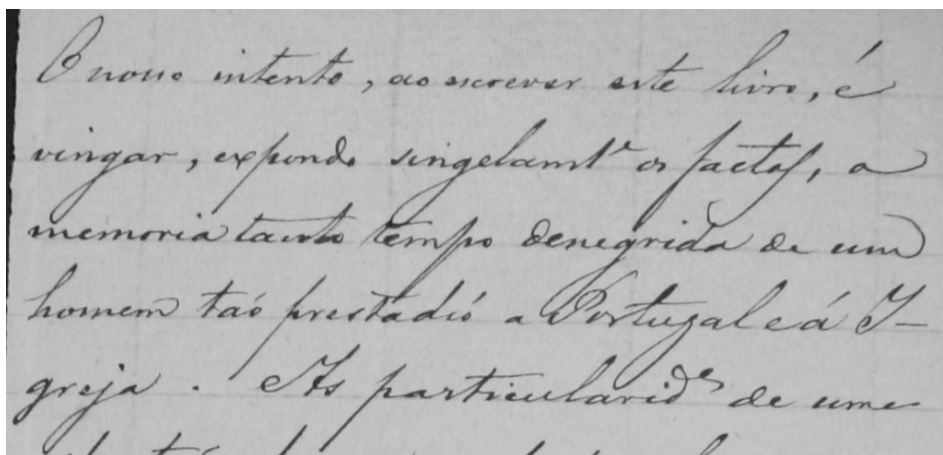 O nosso intento, ao escrever este livro, é
vingar, expondo singelamte os factos, a
memoria tanto tempo denegrida de um
homem tão prestadio a Portugal e á I-
greja. As particularides de uma